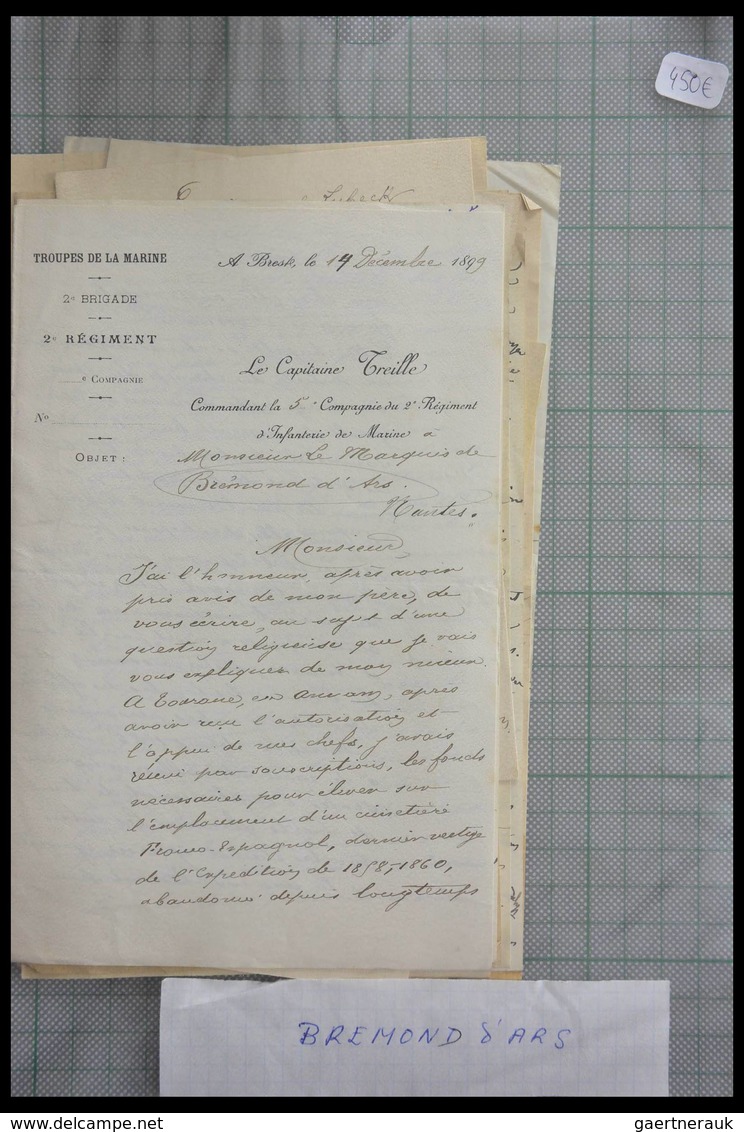 450€
Lubeck
TROUPES DE LA MARINE
2e BRIGADE
2e RÉGIMENT
e COMPAGNIE
No
OBJET :
A Brest, le 14 Décembre 1899
Le Capitaine Treille
Commandant la 5e Compagnie du 2e Régiment
d'Infanterie de Marine à
Monsieur Le Marquis de
Brémond d'Ars.
Nantes.
Monsieur,
J'ai l'honneur, après avoir
pris avis de mon père, de
vous écrire, au sujet d'une
question religieuse que je vais
vous expliquer de mon mieux.
A Tourane, en Annam, après
avoir reçu l'autorisation et
l'appui de mes chefs, j'avais
réuni par souscriptions, les fonds
nécessaires pour élever sur
l'emplacement d'un cimetière
Franco-Espagnol, dernier vestige
de l'Expédition de 1858-1860,
abandonné depuis longtemps
BREMOND d'ARS
gaertnerauk